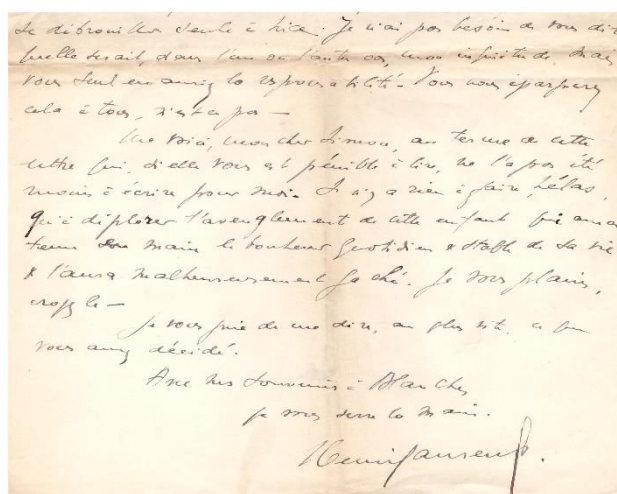 se débrouiller seule à Nice. Je n'ai pas besoin de vous dire
quelle serait, dans l'un ou l'autre cas, mon inquiétude. Mais
vous seul en auriez la responsabilité. Vous nous épargnerez
cela à tous, n'est-ce pas —
Me voici, mon cher Simon, au terme de cette
lettre qui, si elle vous est pénible à lire, ne l'a pas été
moins à écrire pour moi. Il n'y a rien à faire, hélas,
qu'à déplorer l'aveuglement de cette enfant qui aura
tenu en main le bonheur quotidien & stable de sa vie
& l'aura malheureusement gâché. Je vous plains,
croyez-le —
Je vous prie de me dire, au plus vite, ce que
vous aurez décidé.
Avec nos souvenirs à Blanche,
je vous serre la main.